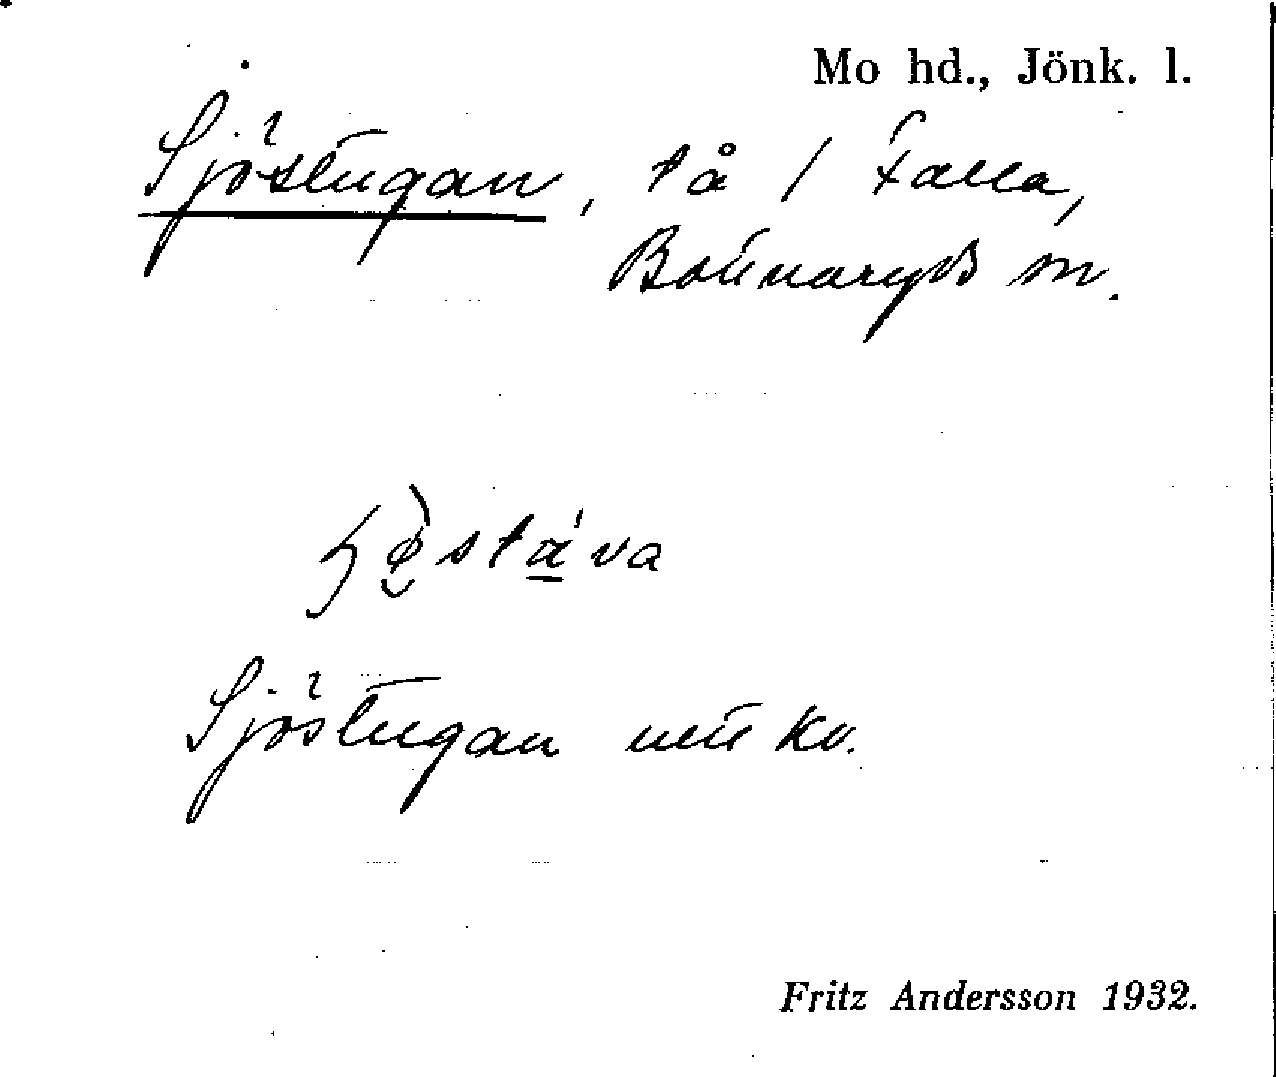 Mo hd., Jönk. l.
Sjöstugan, tå / Falla,
Bottnaryds sn.
Sjöstugan utt kv.
Fritz Andersson 1932.